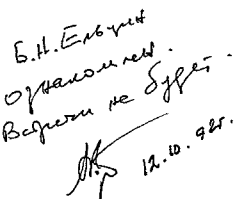 Б.Н. Ельцин
ознакомлен.
Встречи не будет.
12.10.92г.